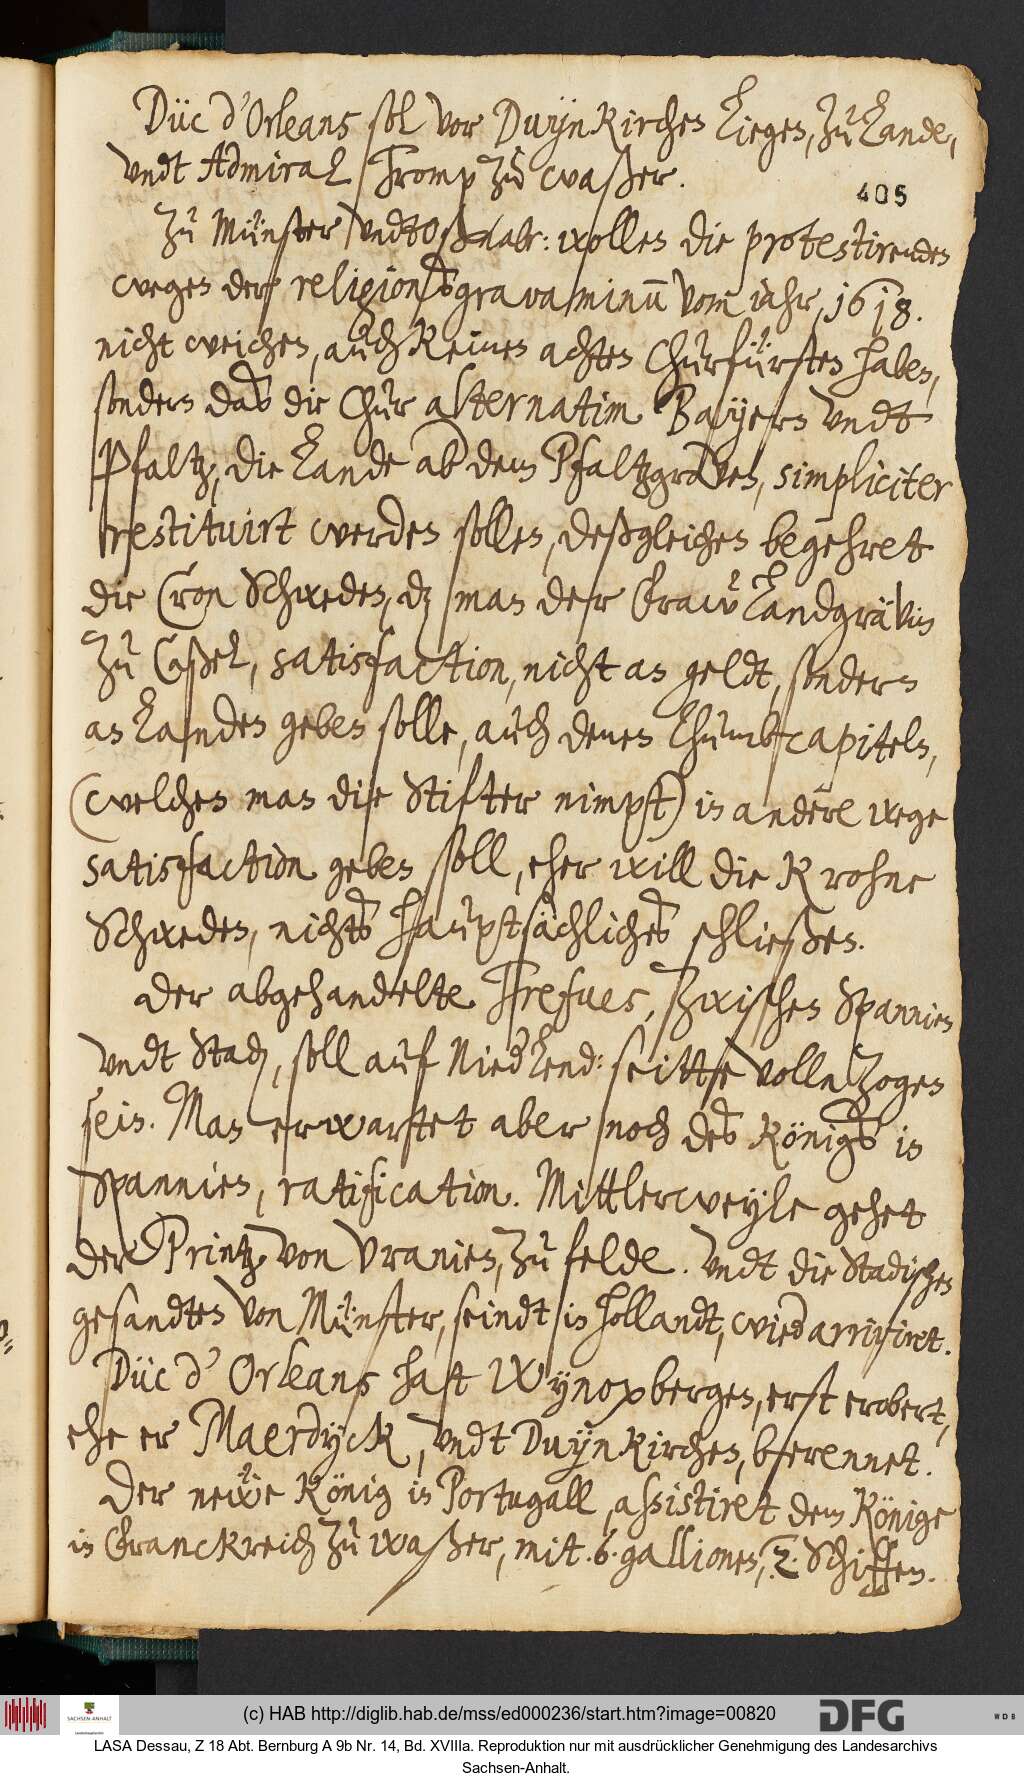 Düc d'Orleans sol vor Duÿnkirchen liegen, zu Lande,
vndt Admiral Tromp zu waßer.
405
Zu Münster vndt Oßnabr: wollen die protestirenden
wegen der religionsgravaminū vom iahr, 1618.
nicht weichen, auch keinen achten Churfürsten haben,
sondern das die Chur alternatim Bayern vndt
Pfaltz, die Lande ab dem Pfaltzgraven, simpliciter
restituirt werden sollen, deßgleichen begehret
die Cron Schweden, dz man der Fraw Landgrävin
zu Caßel, satisfaction, nicht an geldt, sondern
an Landen geben solle, auch denen Thumbcapiteln,
(welchen man die Stifter nimpft) in andere wege
satisfaction geben soll, eher will die Krohne
Schweden, nichts hauptsächliches schließen.
Der abgehandelte Trefues, zwischen Spannien
vndt Stad, soll auf Niedlend: seitte vollnzogen
sein. Man erwartet aber noch des Königs in
Spannien, ratification. Mittlerweyle gehet
der Printz von Vranien, zu felde. Vndt die Stadischen
gesandten von Münster, seindt in Hollandt, wied arriviret.
Düc d'Orleans haft Wÿnoxbergen, erst erobert,
ehe er Maerdÿck, vndt Duÿnkirchen, berennet.
Der newe König in Portugall, assistiret dem Könige
in Franckreich zu waßer, mit .6. gallionen, 2. Schiffen.
(c) HAB http://diglib.hab.de/mss/ed000236/start.htm?image=00820
SACHSEN-ANHALT
DFG
WDB
LASA Dessau, Z 18 Abt. Bernburg A 9b Nr. 14, Bd. XVIIIa. Reproduktion nur mit ausdrücklicher Genehmigung des Landesarchivs
Sachsen-Anhalt.